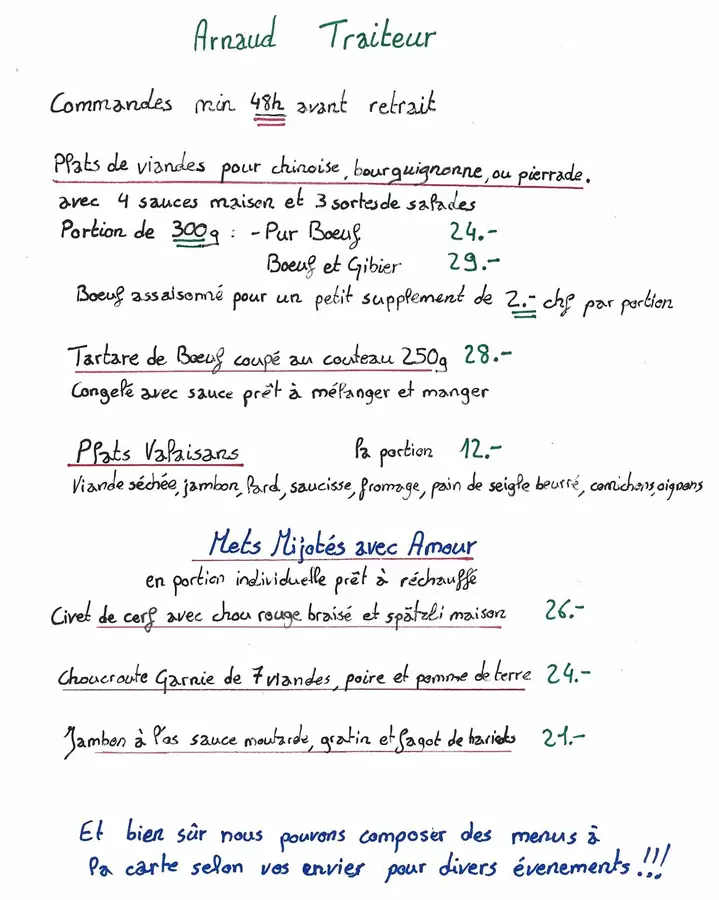 Arnaud Traiteur
Commandes min 48h avant retrait
Plats de viandes pour chinoise, bourguignonne, ou pierrade.
avec 4 sauces maison et 3 sortes de salades
Portion de 300g : - Pur Boeuf 24.-
Boeuf et Gibier 29.-
Boeuf assaisonné pour un petit supplement de 2.- chf par portion
Tartare de Boeuf coupé au couteau 250g 28.-
Congelé avec sauce prêt à mélanger et manger
Plats Valaisans la portion 12.-
Viande séchée, jambon, lard, saucisse, fromage, pain de seigle beurré, cornichons, oignons
Mets Mijotés avec Amour
en portion individuelle prêt à réchauffé
Civet de cerf avec chou rouge braisé et spätzli maison 26.-
Choucroute Garnie de 7 viandes, poire et pomme de terre 24.-
Jambon à l'os sauce moutarde, gratin et fagot de haricots 21.-
Et bien sûr nous pouvons composer des menus à
la carte selon vos envier pour divers évenements !!!